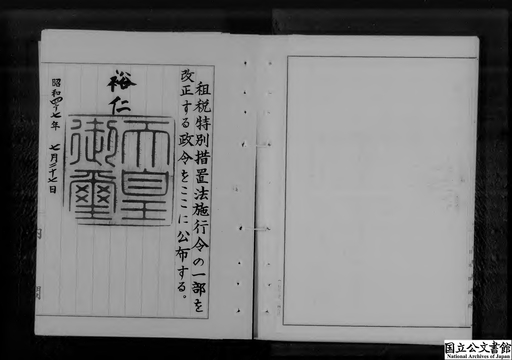 租税特別措置法施行令の一部を
改正する政令をここに公布する。
裕仁
天皇
御璽
昭和四十七年 七月二十七日
国立公文書館
National Archives of Japan